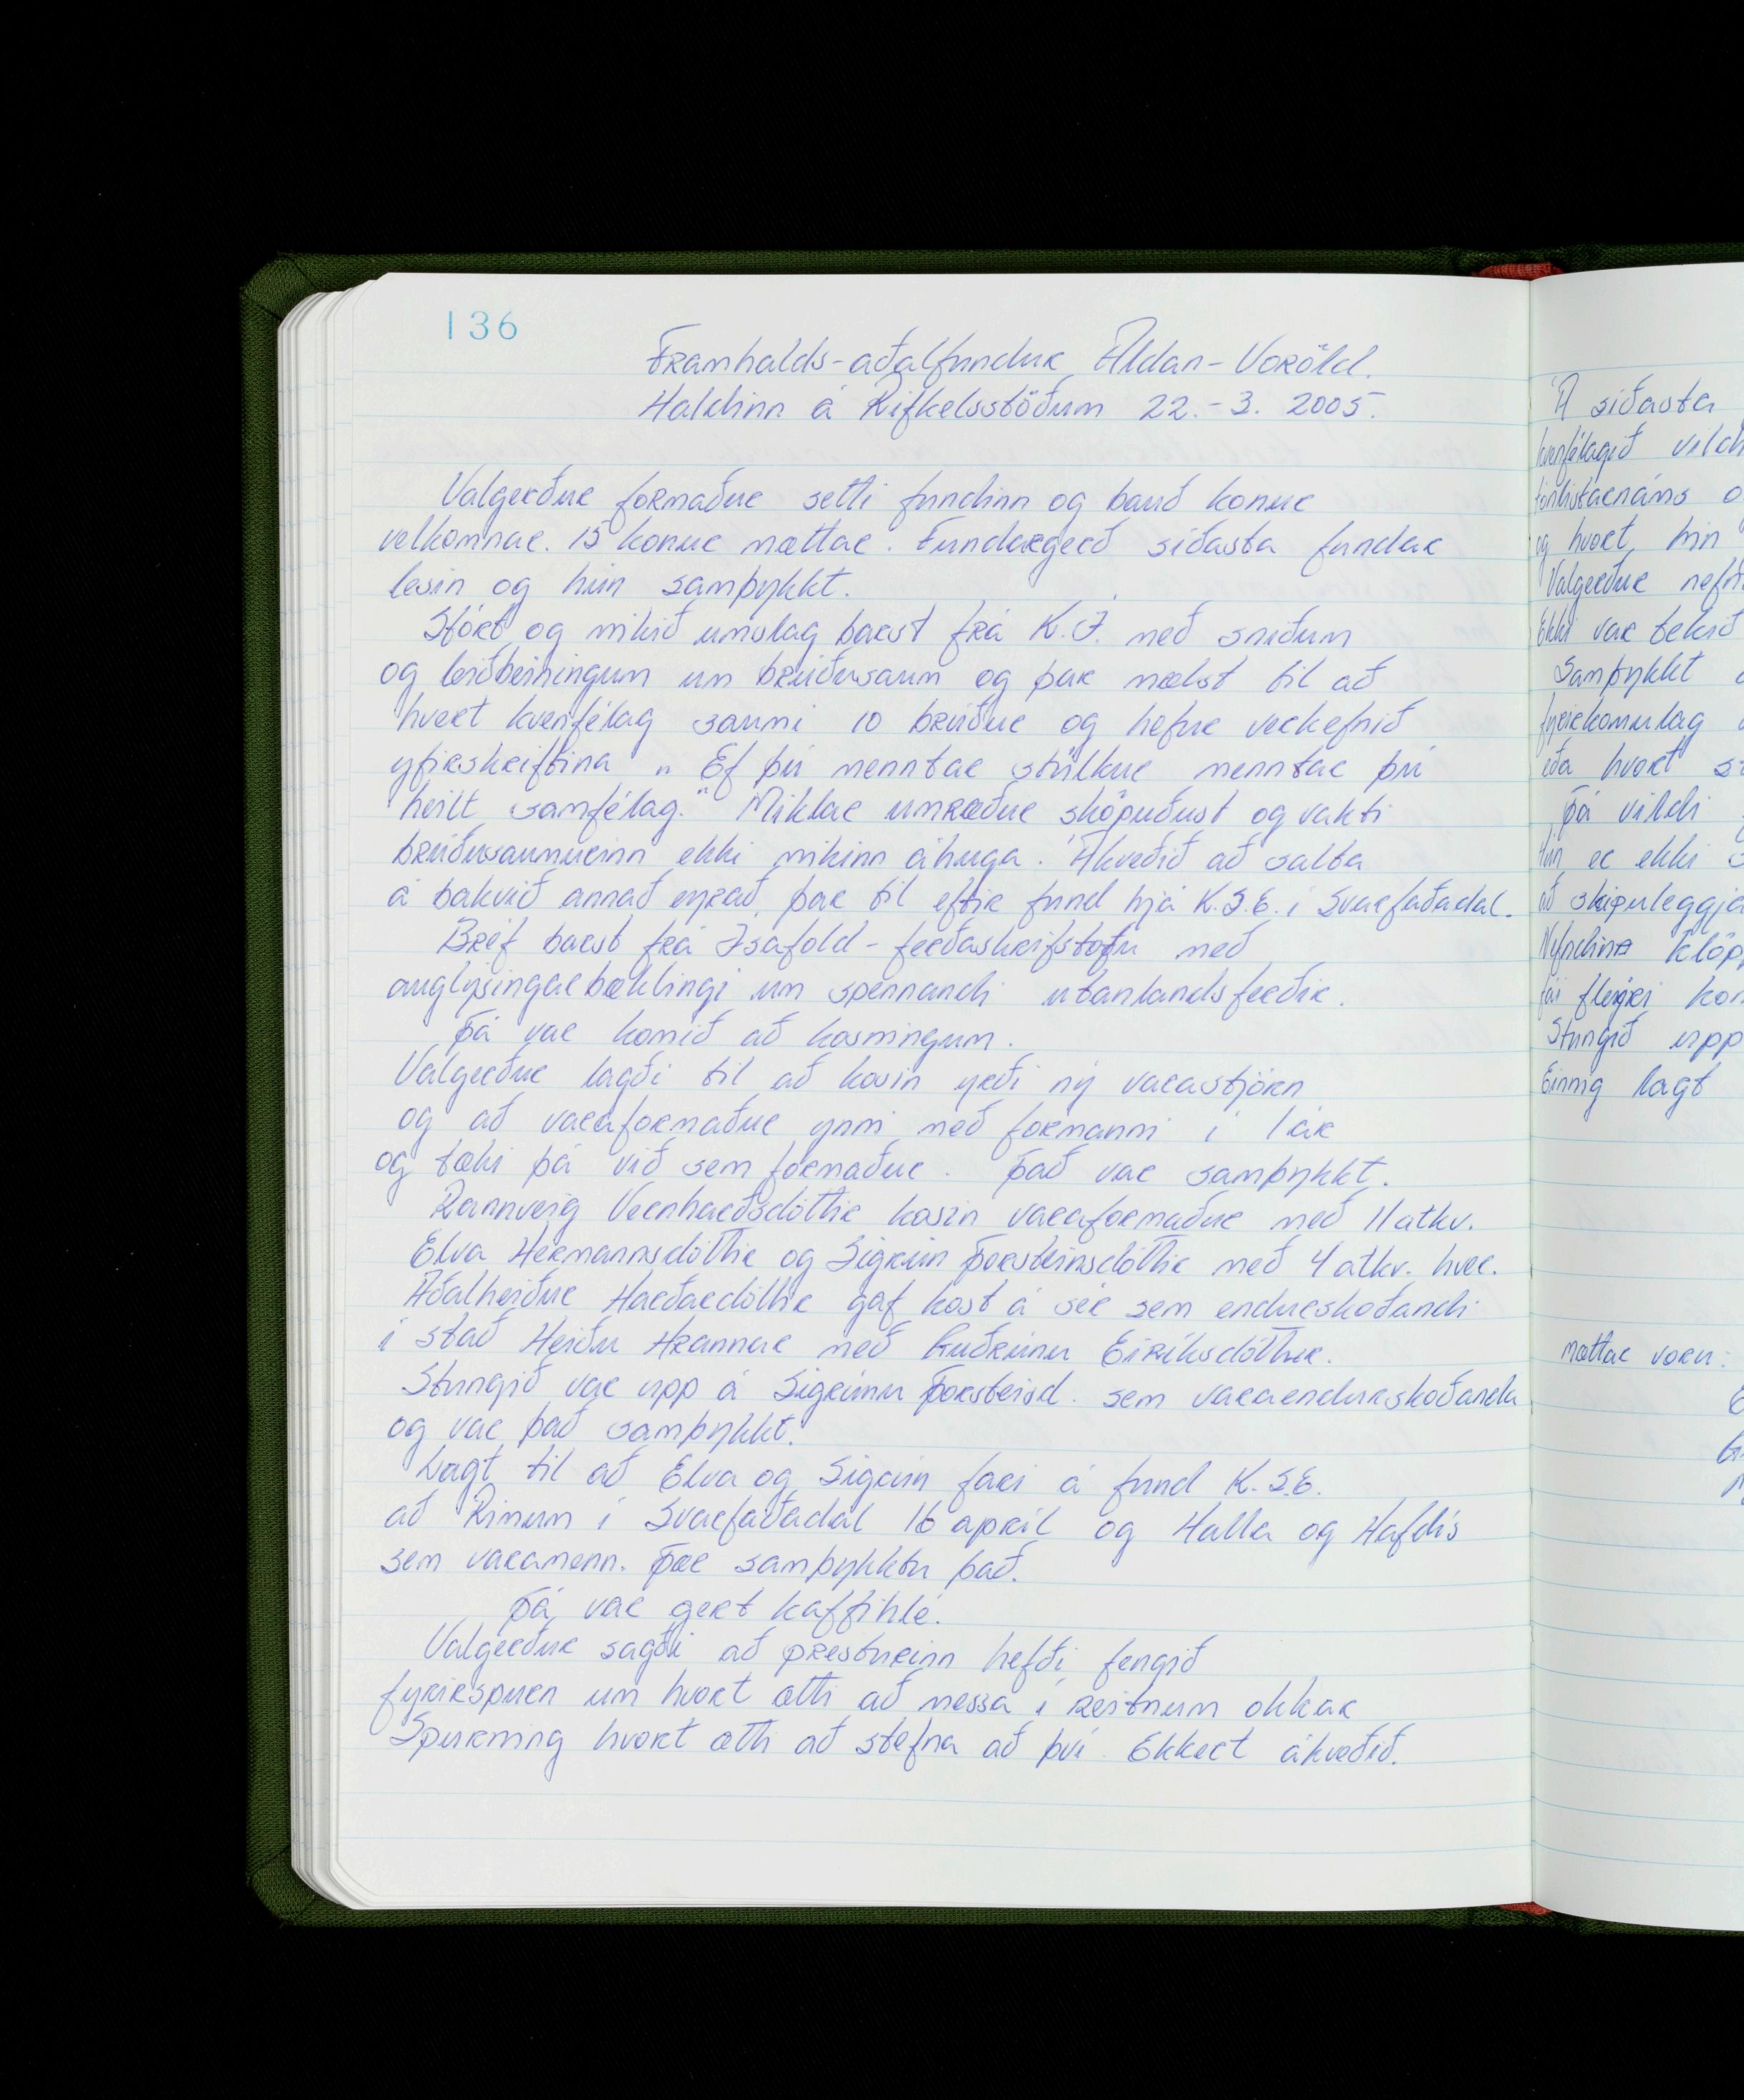 136
Framhalds-aðalfundur Aldan-Voröld.
Haldinn á Rifkelsstöðum 22.-3. 2005.
Valgerður formaður setti fundinn og bauð konur
velkomnar. 15 konur mættar. Fundargerð síðasta fundar
lesin og hún samþykkt.
Stórt og mikið umslag barst frá K.Í. með sniðum
og leiðbeiningum um brúðusaum og þar mælst til að
hvert kvenfélag saumi 10 brúður og hefur verkefnið
yfirskriftina „Ef þú menntar stúlkur menntar þú
heilt samfélag." Miklar umræður sköpuðust og vakti
brúðusaumurinn ekki mikinn áhuga. Ákveðið að salta
á bakvið annað eyrað þar til eftir fund hjá K.S.E. í Svarfaðadal.
Bréf barst frá Ísafold - ferðaskrifstofu með
auglýsingarbæklingi um spennandi utanlandsferðir.
Þá var komið að kosningum.
Valgerður lagði til að kosin yrði ný varastjórn
og að varaformaður ynni með formanni í 1 ár
og tæki þá við sem formaður. Það var samþykkt.
Rannveig Vernharðsdóttir kosin varaformaður með 11 atkv.
Elva Hermannsdóttir og Sigrún Þorsteinsdóttir með 4 atkv. hver.
Aðalheiður Harðardóttir gaf kost á sér sem endurskoðandi
í stað Heiðu Hrannar með Guðrúnu Eiríksdóttur.
Stungið var upp á Sigrúnu Þorsteisd. sem varaendurskoðanda
og var það samþykkt.
Lagt til að Elva og Sigrún fari á fund K.S.E.
að Rimum í Svarfaðadal 16 apríl og Halla og Hafdís
sem varamenn. Þær samþykktu það.
Þá var gert kaffihlé.
Valgerður sagði að presturinn hefði fengið
fyrirspurn um hvort ætti að messa í reitnum okkar
Spurning hvort ætti að stefna að því. Ekkert ákveðið.
Á síðasta
kvenfélagið
tónlistarnáms
og hvort hún
Valgerður
Ekki var tekið
Samþykkt
fyrirkomulag
eða hvort
Þá vildi
Hún er ekki
að skipuleggja
fá fleiri
Stungið upp
Einnig lagt
mættar voru: